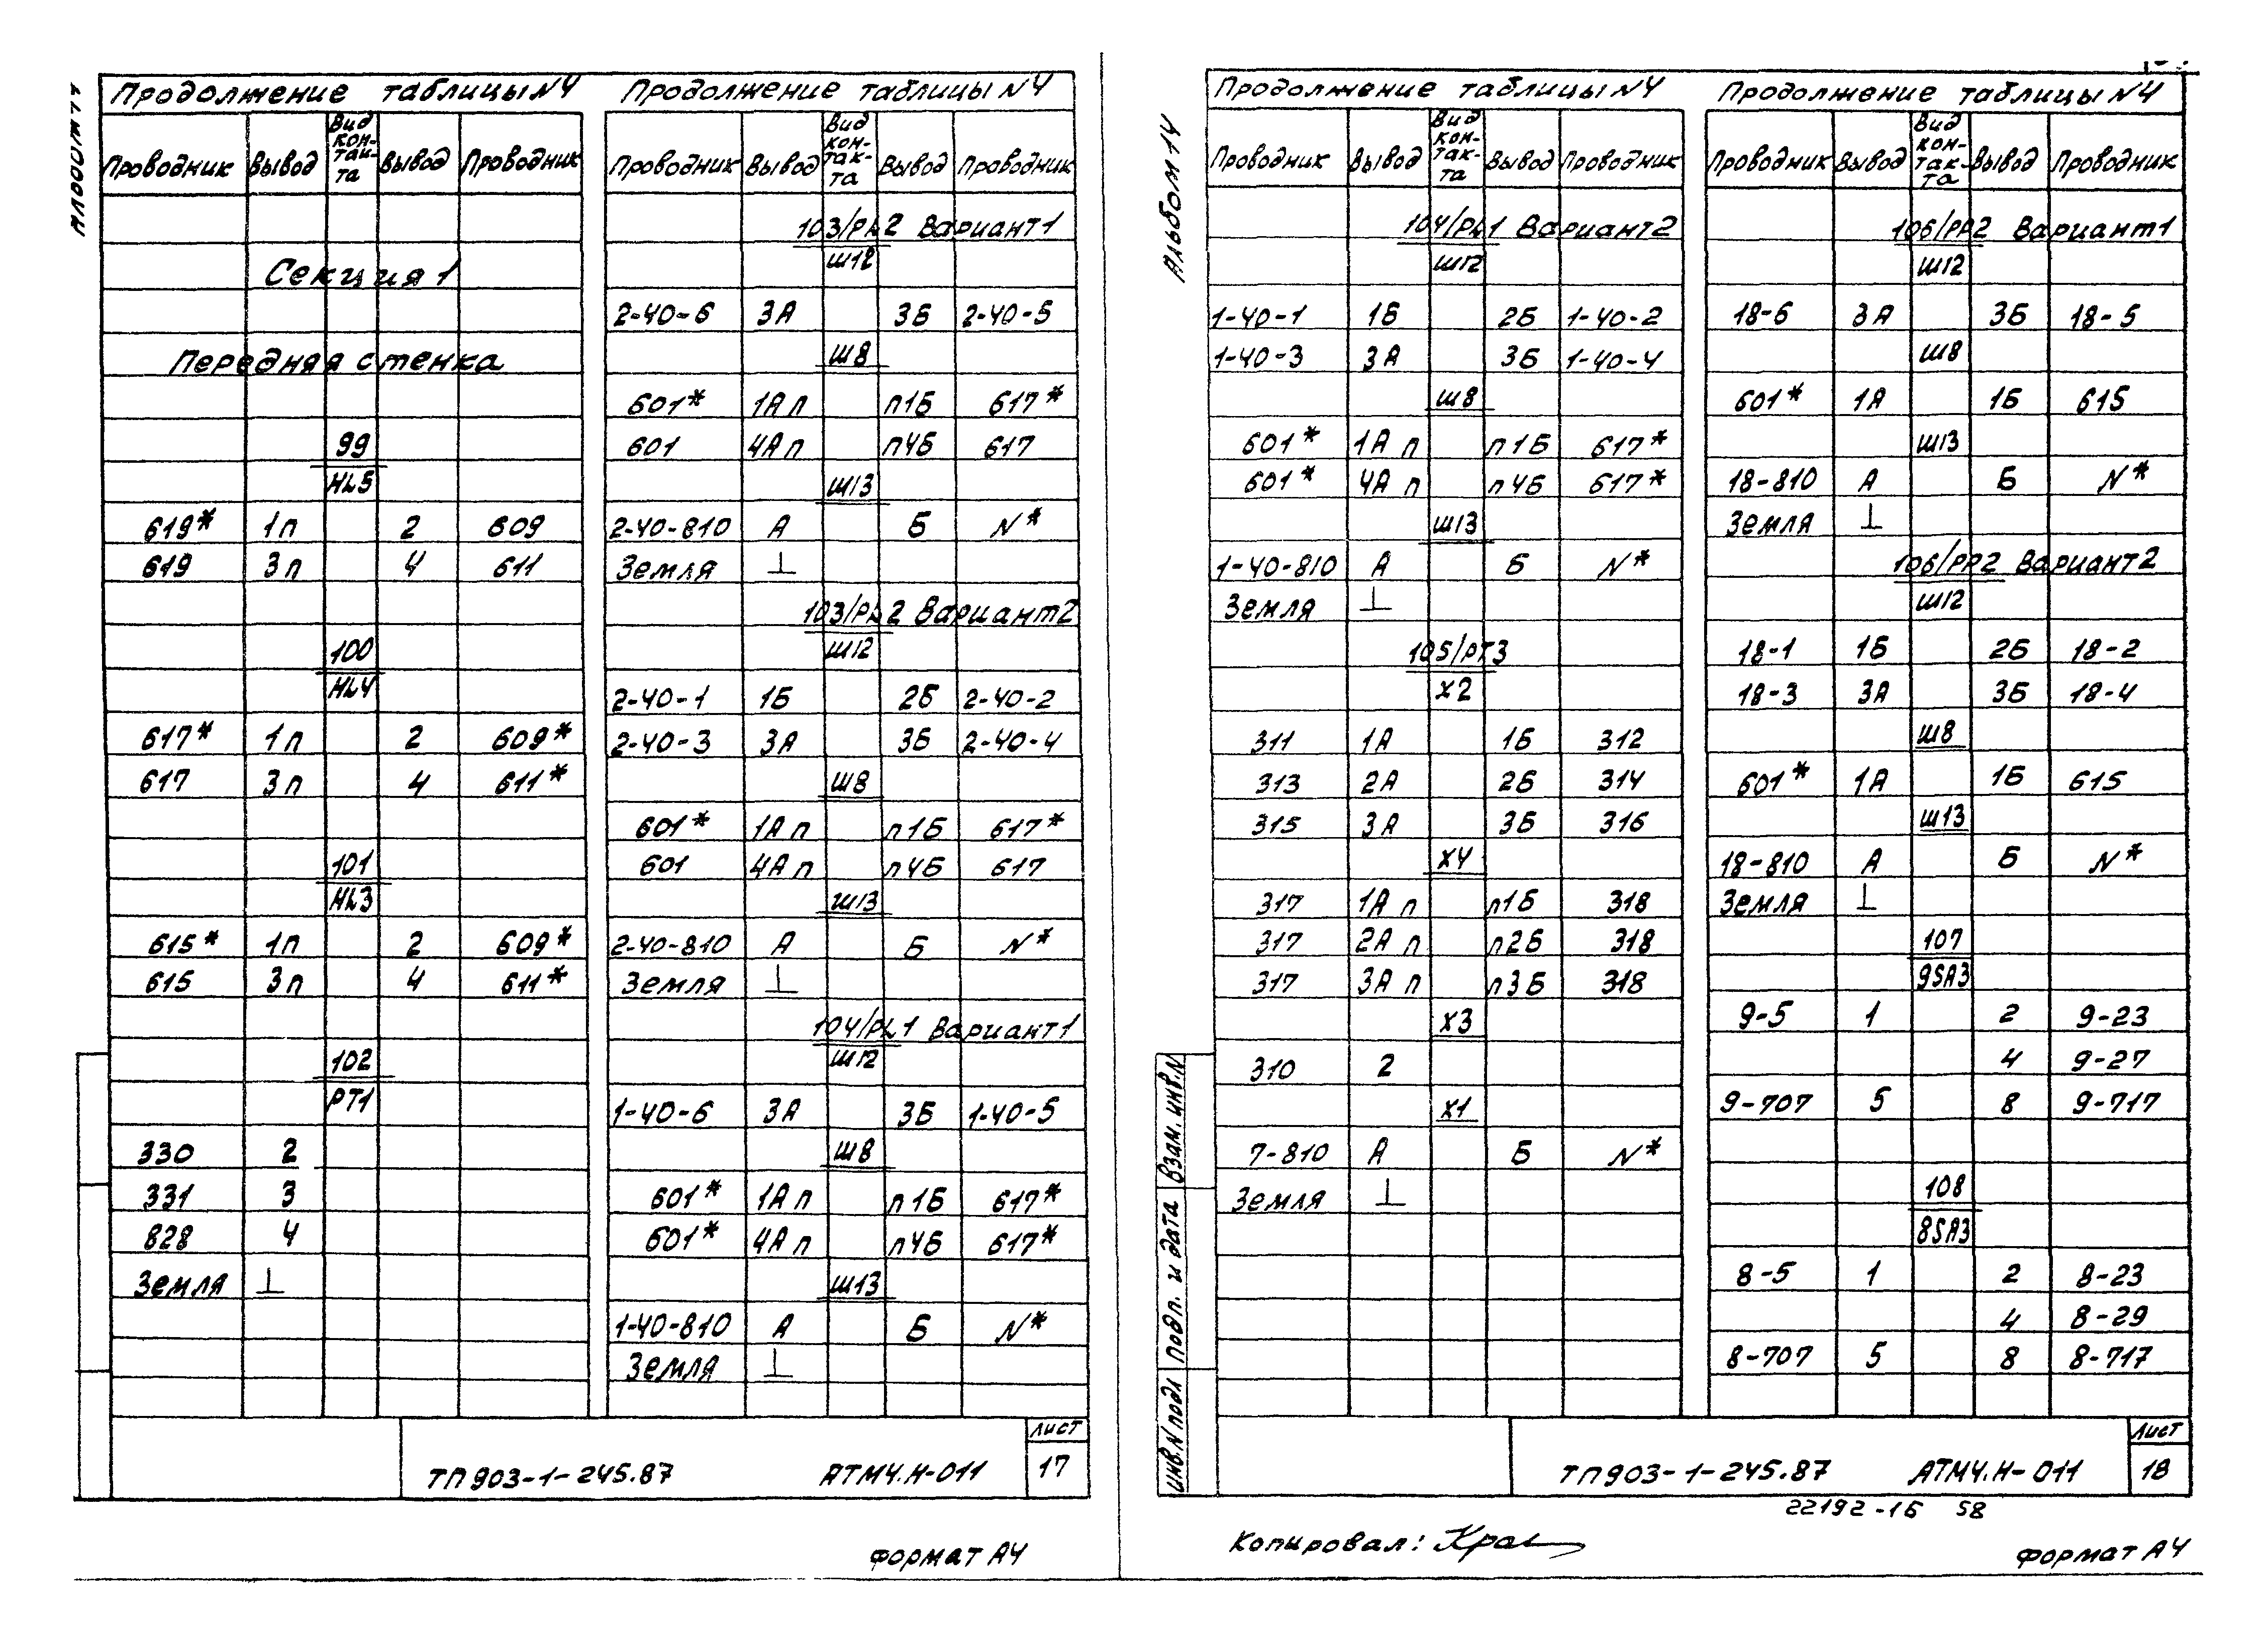 Альбом 14
Продолжение таблицы N4
Проводник Вывод Вид контакта Вывод Проводник
Секция 1
Передняя стенка
99
HL5
619* 1п 2 609
619 3п 4 611
100
HL4
617* 1п 2 609*
617 3п 4 611*
101
HL3
615* 1п 2 609*
615 3п 4 611*
102
РТ1
330 2
331 3
828 4
Земля ⊥
Продолжение таблицы N4
Проводник Вывод Вид контакта Вывод Проводник
103/PL2 Вариант1
Ш12
2-40-6 3А 3Б 2-40-5
Ш8
601* 1А п п1Б 617*
601 4А п п4Б 617
Ш13
2-40-810 А Б N*
Земля ⊥
103/PL2 Вариант2
Ш12
2-40-1 1Б 2Б 2-40-2
2-40-3 3А 3Б 2-40-4
Ш8
601* 1А п п1Б 617*
601 4А п п4Б 617
Ш13
2-40-810 А Б N*
Земля ⊥
104/PL1 Вариант1
Ш12
1-40-6 3А 3Б 1-40-5
Ш8
601* 1А п п1Б 617*
601* 4А п п4Б 617*
Ш13
1-40-810 А Б N*
Земля ⊥
ТП903-1-245.87 АТМ4.Н-011
Лист
17
Формат А4
Альбом 14
Продолжение таблицы N4
Проводник Вывод Вид контакта Вывод Проводник
104/PL1 Вариант2
Ш12
1-40-1 1Б 2Б 1-40-2
1-40-3 3А 3Б 1-40-4
Ш8
601* 1А п п1Б 617*
601* 4А п п4Б 617*
Ш13
1-40-810 А Б N*
Земля ⊥
105/РТ3
Х2
311 1А 1Б 312
313 2А 2Б 314
315 3А 3Б 316
Х4
317 1А п п1Б 318
317 2А п п2Б 318
317 3А п п3Б 318
Х3
310 2
Х1
7-810 А Б N*
Земля ⊥
Продолжение таблицы N4
Проводник Вывод Вид контакта Вывод Проводник
106/РР2 Вариант1
Ш12
18-6 3А 3Б 18-5
Ш8
601* 1А 1Б 615
Ш13
18-810 А Б N*
Земля ⊥
106/РР2 Вариант2
Ш12
18-1 1Б 2Б 18-2
18-3 3А 3Б 18-4
Ш8
601* 1А 1Б 615
Ш13
18-810 А Б N*
Земля ⊥
107
9SA3
9-5 1 2 9-23
4 9-27
9-707 5 8 9-717
108
8SA3
8-5 1 2 8-23
4 8-29
8-707 5 8 8-717
Инв.N подл Подп. и дата Взам. инв.N
ТП903-1-245.87 АТМ4.Н-011
Лист
18
22192-16 58
Копировал:
Формат А4